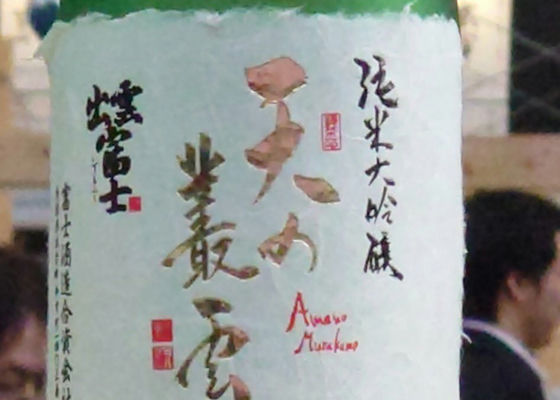 純米大吟醸
天の
叢雲
Amano
Murakumo
出雲富士
富士酒造合資会社